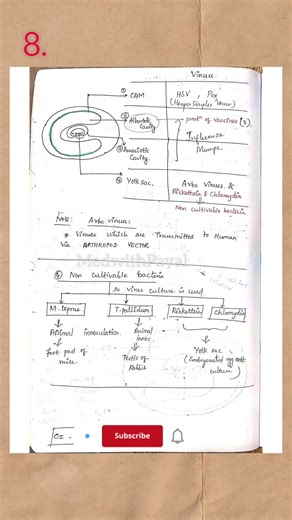 8.
Viruses
① CAM
HSV, Pox
(Herpes Simplex Virus)
② Allantoic
Cavity
→ prodⁿ of vaccines (3)
Influenza
Mumps.
③ Amniotic
Cavity.
④ Yolk sac.
Arbo viruses &
Rickettsia & Chlamydia
Non cultivable bacteria
Note: Arbo viruses:
* Viruses which are Transmitted to Human
via ARTHROPOD VECTOR
MedwithPayal
Non cultivable bacteria
so virus culture is used
M. leprae
T. pallidum
Rickettsia
Chlamydia
Animal innoculation.
Animal
innoc.
Foot pad of
mice
Testis of
Rabbit
Yolk sac
(Embryonated egg
culture)
Subscribe